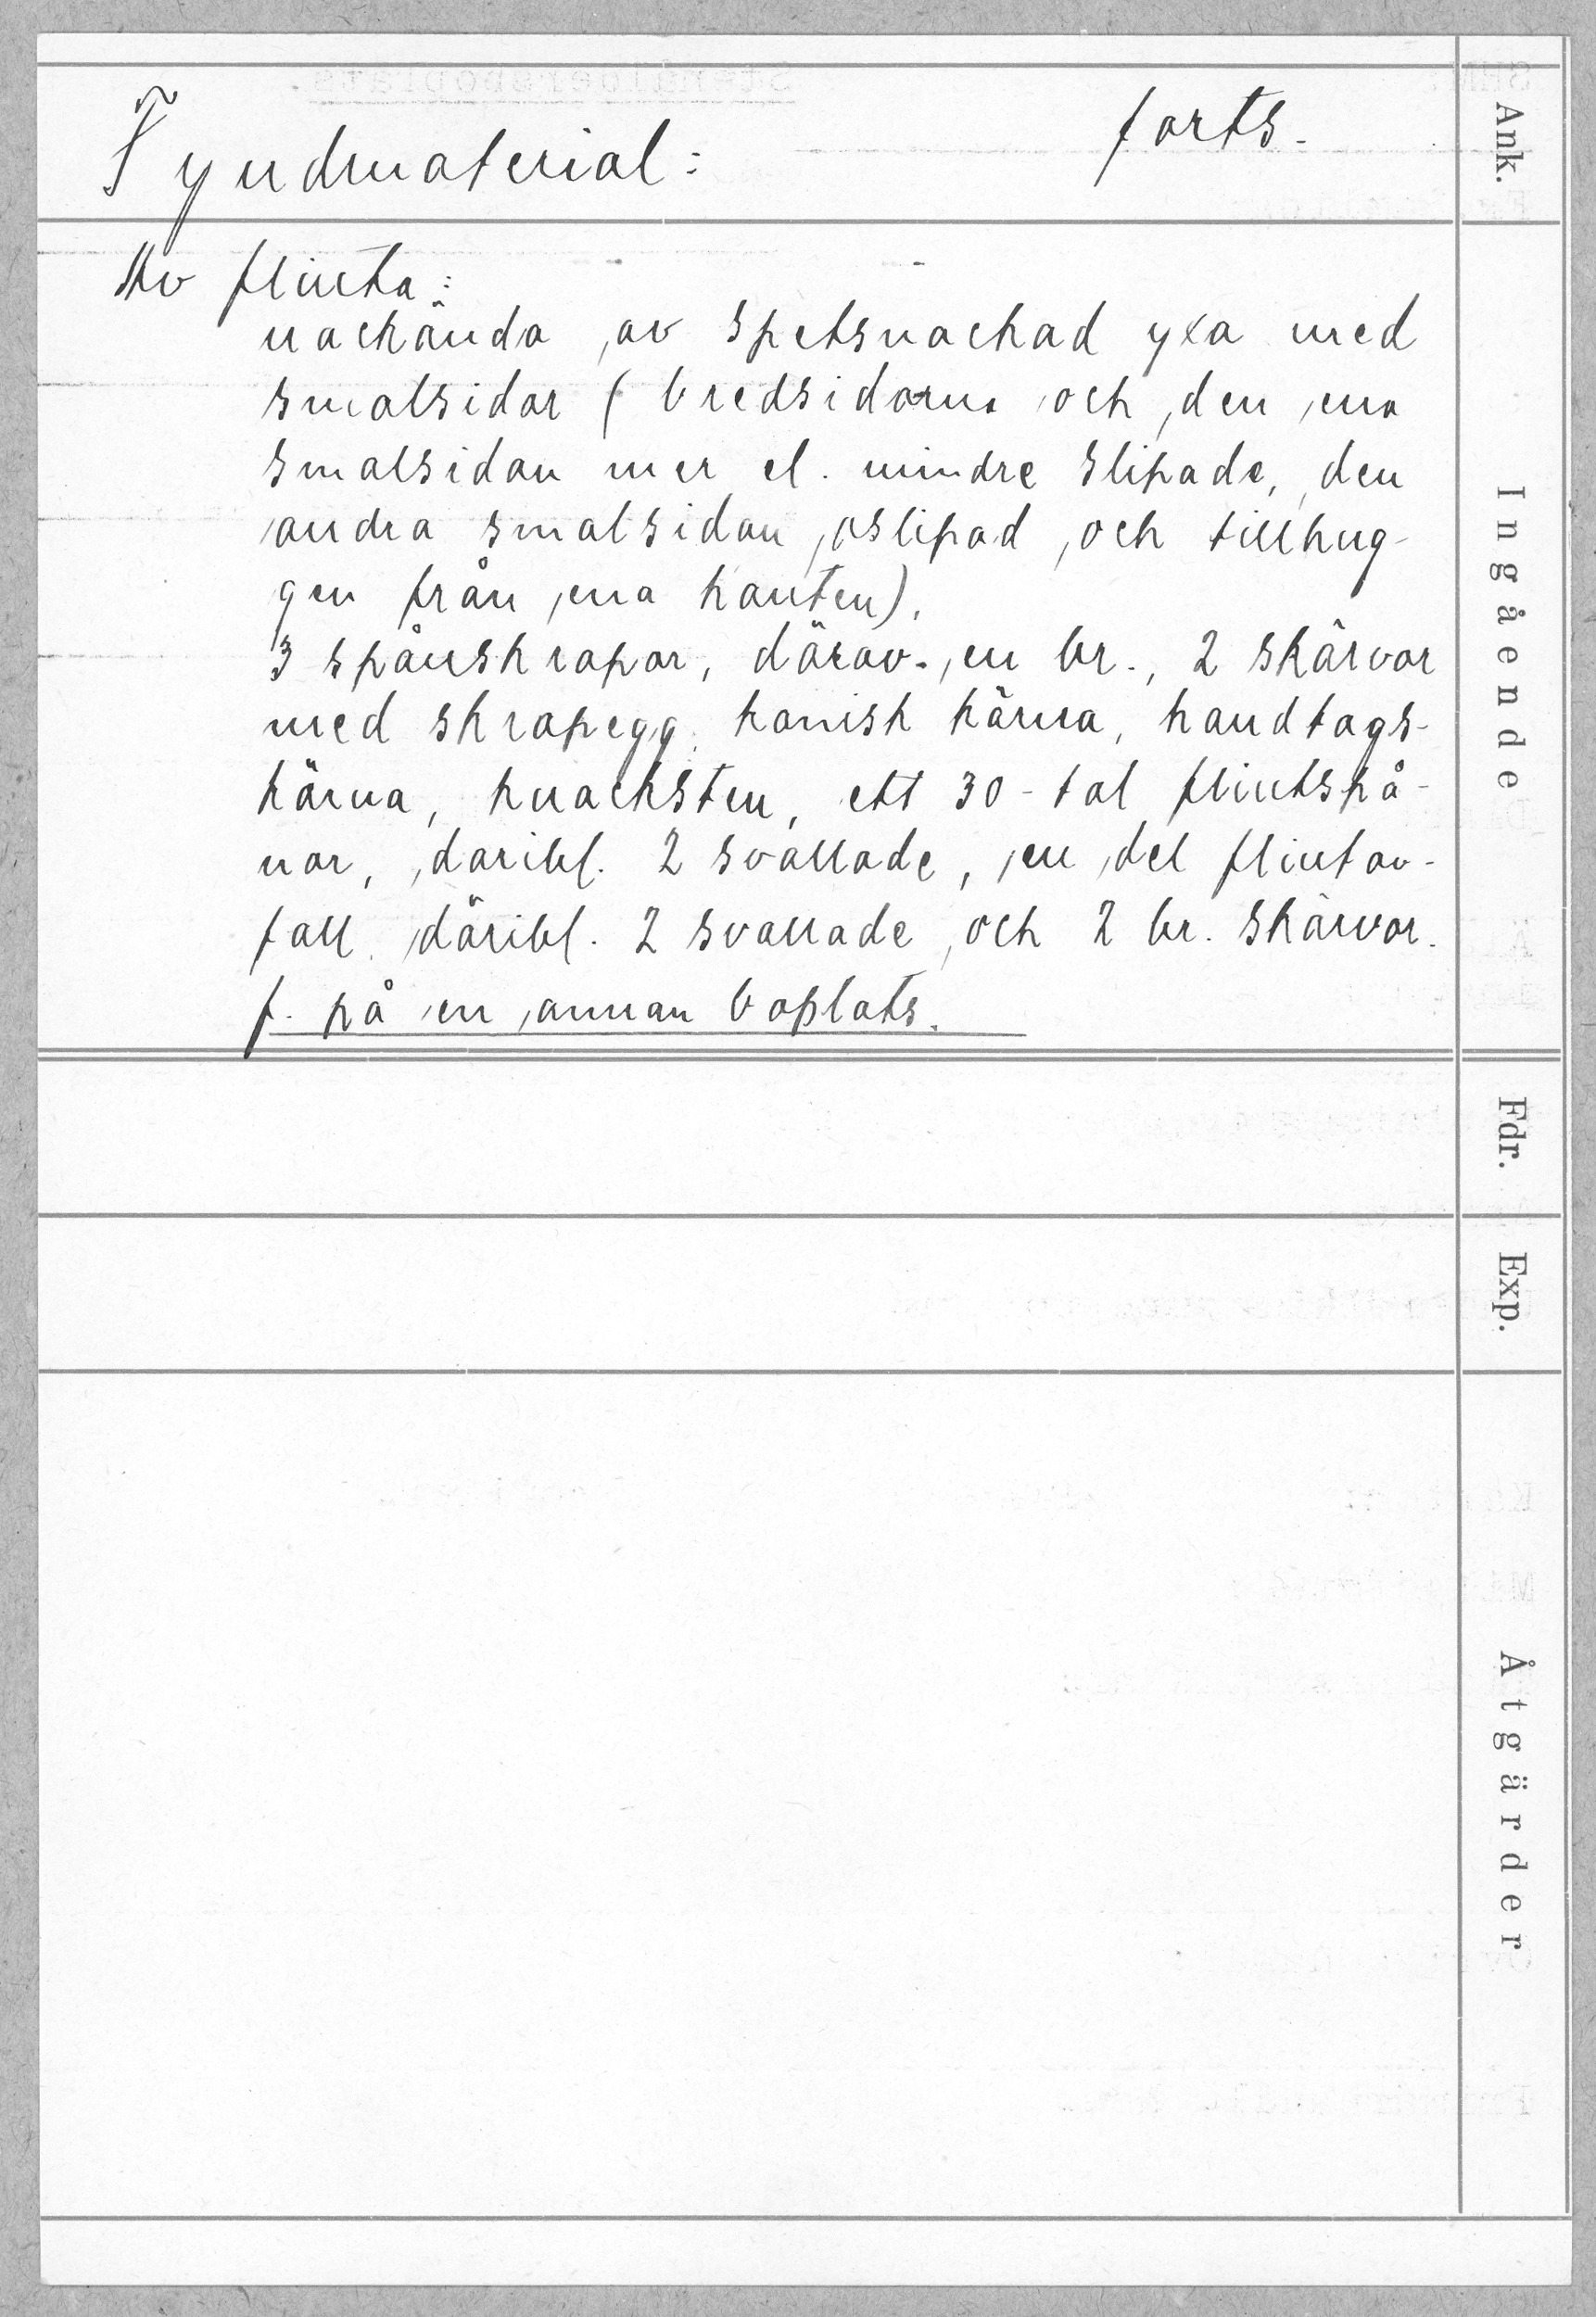 Fyndmaterial: forts.
Av flinta:
nackända av spetsnackad yxa med
smalsidor (bredsidorna och den ena
smalsidan mer el. mindre slipade, den
andra smalsidan oslipad och tillhug-
gen från ena kanten),
3 spånskrapor, därav en br., 2 skärvor
med skrapegg, konisk kärna, handtags-
kärna, knacksten, ett 30-tal flintspå-
nor, daribl. 2 svallade, en del flintav-
fall däribl. 2 svallade och 2 br. skärvor.
f. på en annan boplats.
Ank.
Ingående
Fdr.
Exp.
Åtgärder
Stenåldersboplats.